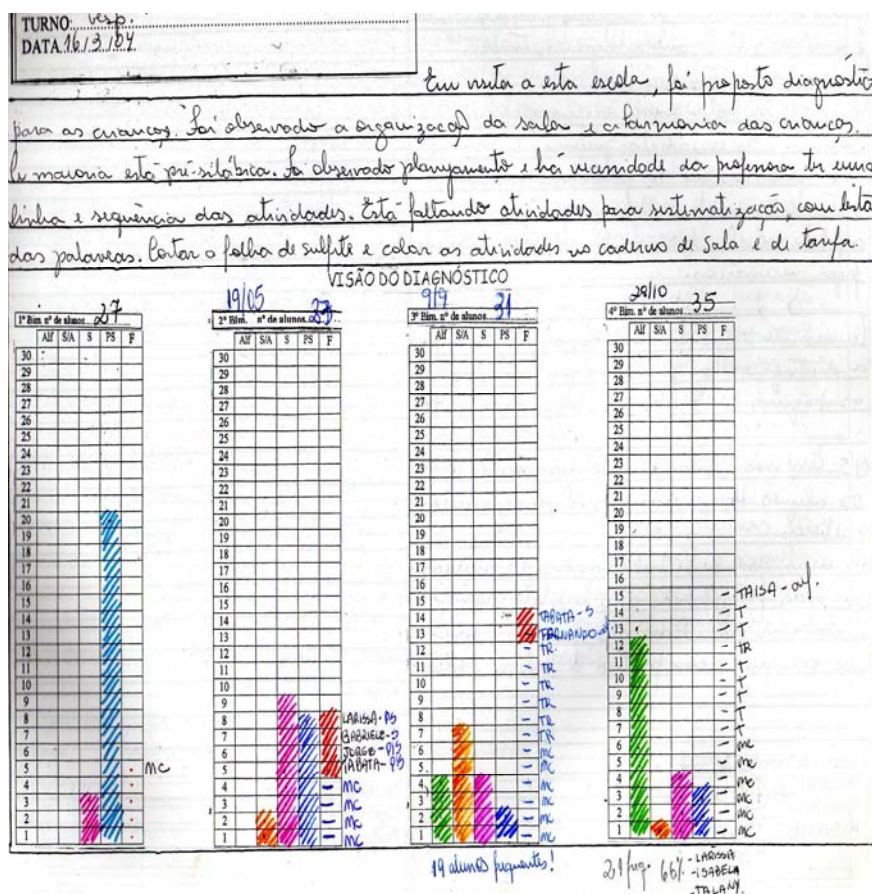 TURNO: Vesp.
DATA 16/3/04
Em visita a esta escola, foi proposto diagnóstico
para as crianças. Foi observado a organização da sala e a harmonia das crianças.
maioria está pré-silábica. Foi observado planejamento e há necessidade da professora ter uma
linha e sequência das atividades. Está faltando atividades para sistematização, com lista
das palavras. Cortar a folha de sulfite e colar as atividades no caderno de sala e de tarefa.
VISÃO DO DIAGNÓSTICO
1º Bim. nº de alunos 27
Alf S/A S PS F
30
29
28
27
26
25
24
23
22
21
20
19
18
17
16
15
14
13
12
11
10
9
8
7
6
5 MC
4
3
2
1
19/05
2º Bim. nº de alunos
Alf S/A S PS F
30
29
28
27
26
25
24
23
22
21
20
19
18
17
16
15
14
13
12
11
10
9
8 LARISSA - PS
7 GABRIELE - S
6 JORGE - PS
5 TABATA - PS
4 - MC
3 - MC
2 - MC
1 - MC
9/9
3º Bim. nº de alunos 31
Alf S/A S PS F
30
29
28
27
26
25
24
23
22
21
20
19
18
17
16
15
14 TABATA - S
13 FERNANDO
12 - TR
11 - TR
10 - TR
9 - TR
8 - TR
7 - TR
6 - MC
5 - MC
4 - MC
3 - MC
2 - MC
1 - MC
19 alunos frequentes!
28/10
4º Bim. nº de alunos 35
Alf S/A S PS F
30
29
28
27
26
25
24
23
22
21
20
19
18
17
16
15 - TAISA - alf.
14 - T
13 - T
12 - TR
11 - T
10 - T
9 - T
8 - T
7 - T
6 - MC
5 - MC
4 - MC
3 - MC
2 - MC
1 - MC
21 freq. 66% - LARISSA
- ISABELA
- TALANY.